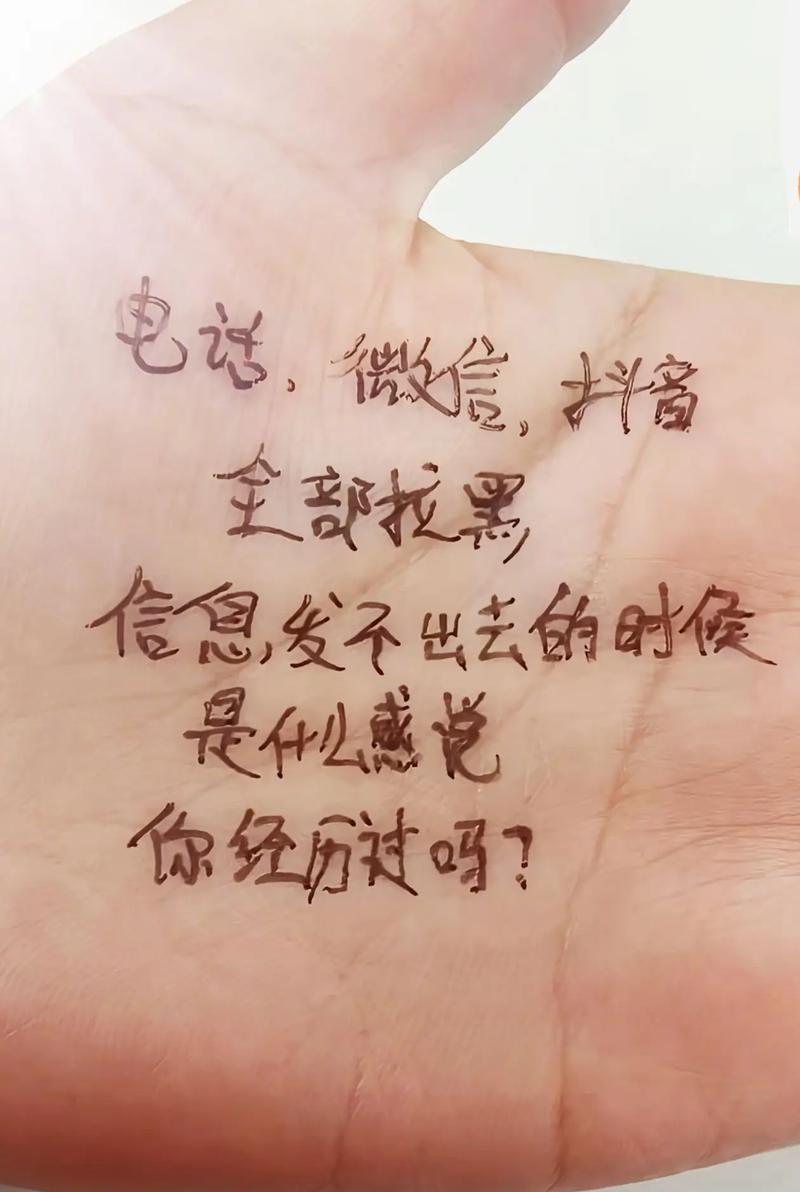 电话,微信,抖音
全部拉黑
信息,发不出去的时候
是什么感觉
你经历过吗?